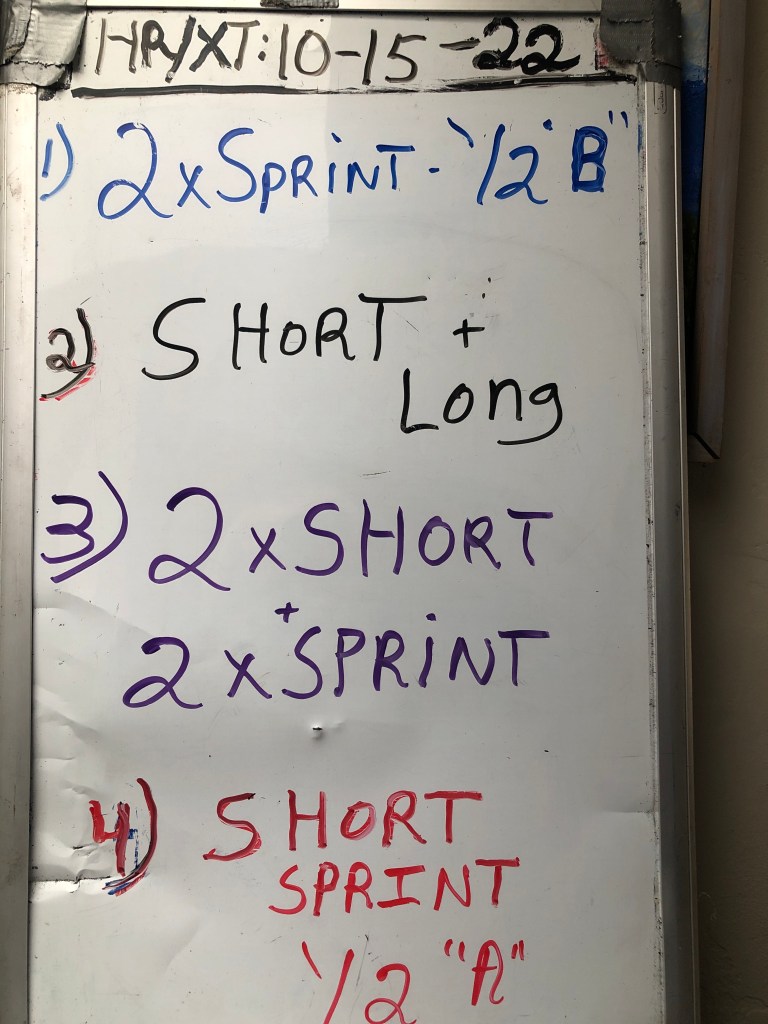 HR/XT: 10-15-22
1) 2xSPRiNT - 1/2 "B"
2) SHoRT +
Long
3) 2xSHORT
+
2xSPRiNT
4) SHORT
SPRINT
1/2 "A"